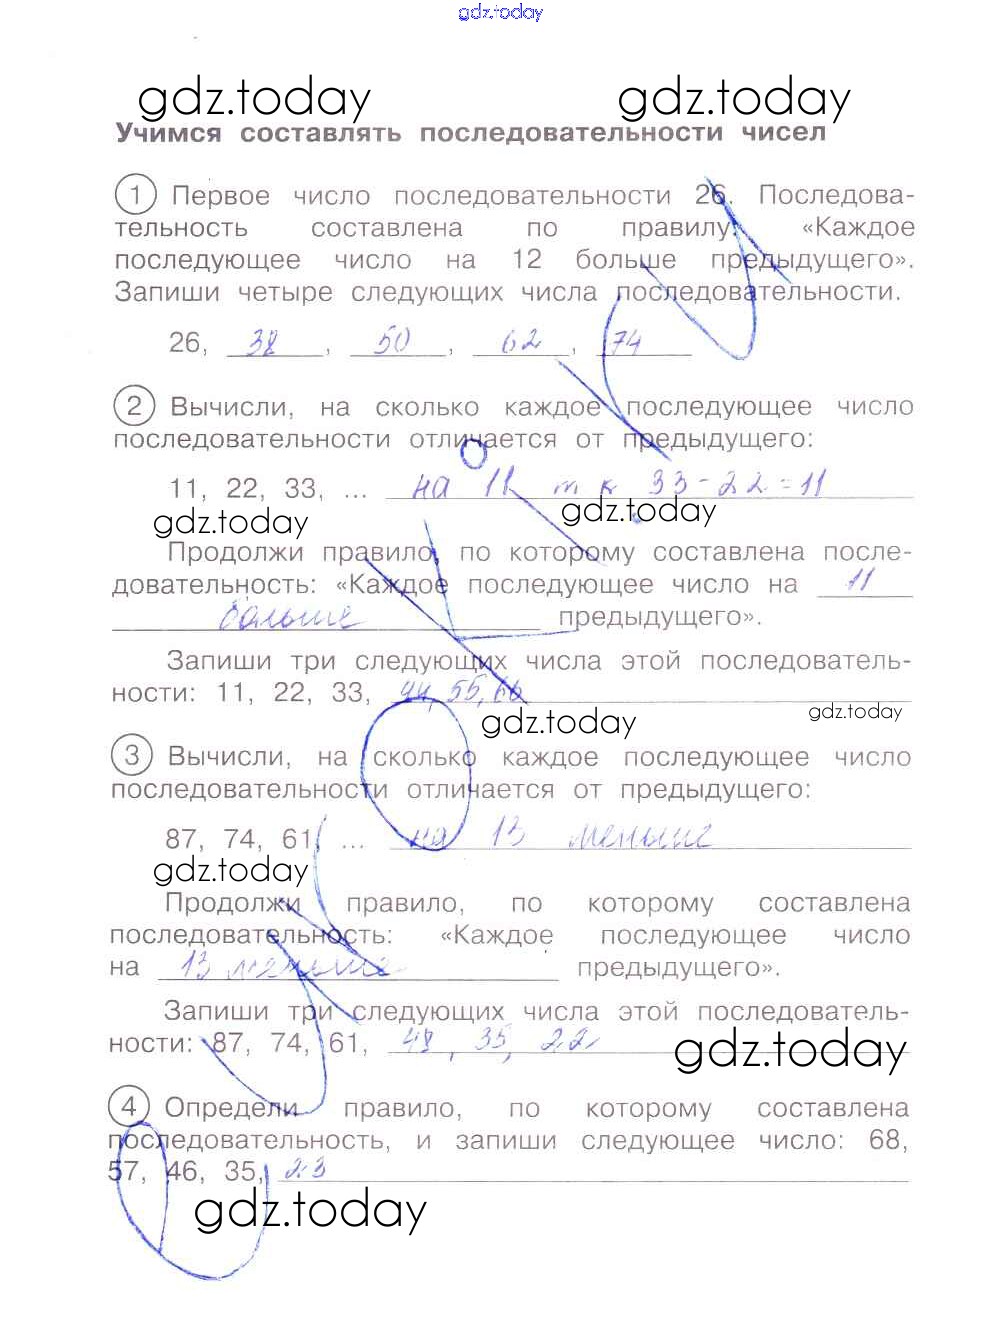 gdz.today
gdz.today gdz.today
Учимся составлять последовательности чисел
1 Первое число последовательности 26. Последова-
тельность составлена по правилу: «Каждое
последующее число на 12 больше предыдущего».
Запиши четыре следующих числа последовательности.
26, 38, 50, 62, 74
2 Вычисли, на сколько каждое последующее число
последовательности отличается от предыдущего:
11, 22, 33, ... на 11 т к 33-22=11
gdz.today gdz.today
Продолжи правило, по которому составлена после-
довательность: «Каждое последующее число на 11
больше предыдущего».
Запиши три следующих числа этой последователь-
ности: 11, 22, 33, 44, 55, 66
gdz.today gdz.today
3 Вычисли, на сколько каждое последующее число
последовательности отличается от предыдущего:
87, 74, 61, ... на 13 меньше
gdz.today
Продолжи правило, по которому составлена
последовательность: «Каждое последующее число
на 13 меньше предыдущего».
Запиши три следующих числа этой последователь-
ности: 87, 74, 61, 48, 35, 22
gdz.today
4 Определи правило, по которому составлена
последовательность, и запиши следующее число: 68,
57, 46, 35, 23
gdz.today